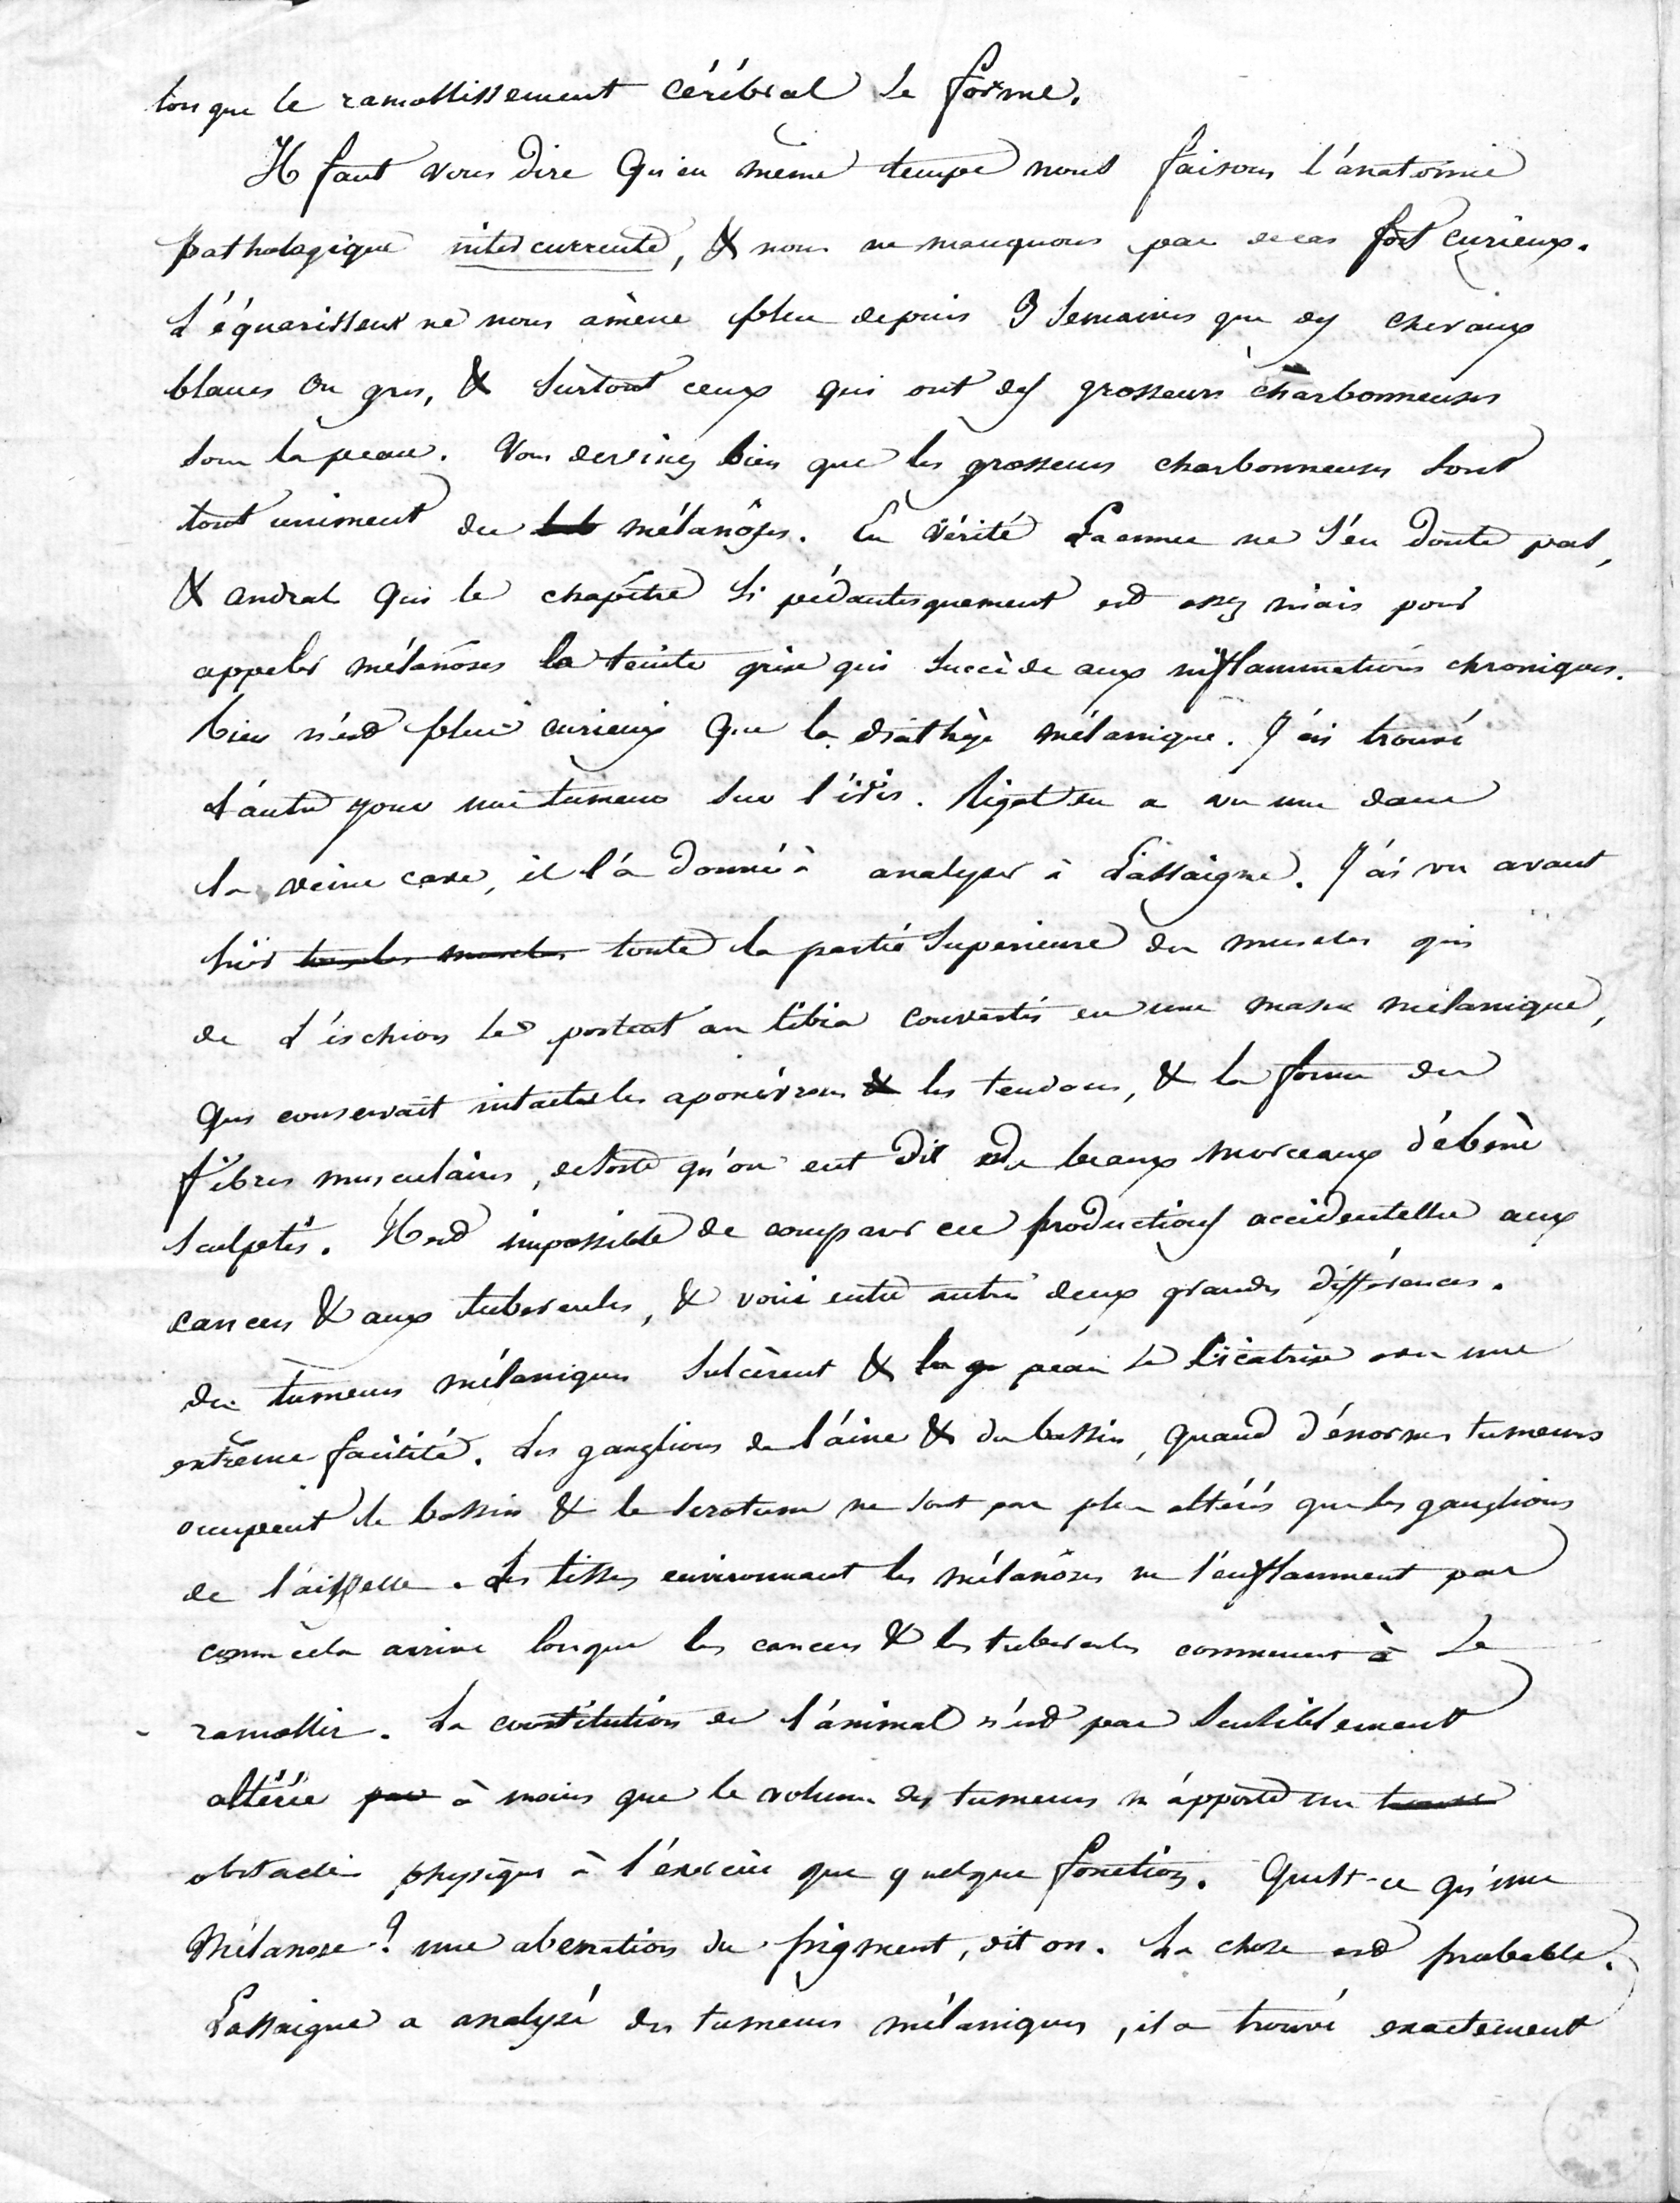 lorsque le ramollissement cérébral se forme.
Il faut vous dire qu'en même temps nous faisons l'anatomie
pathologique intercurrente, & nous ne manquons pas de cas fort curieux.
L'équarisseur ne nous amène plus depuis 3 semaines que des chevaux
blancs ou gris, & surtout ceux qui ont des grosseurs charbonneuses
sous la peau. Vous devinez bien que les grosseurs charbonneuses sont
tout uniment des mélanôses. En vérité Laennec ne s'en doute pas,
& andral qui le chapître si pédantesquement est assez niais pour
appeler mélanôses la teinte grise qui succède aux inflammations chroniques.
Rien n'est plus curieux que la diathèse mélanique. J'ai trouvé
l'autre jour une tumeur sur l'iris. Rigot en a vu une dans
la veine cave, il l'a donnée à analyser à Lassaigne. J'ai vu avant
hier tous les muscles toute la partie supérieure des muscles qui
de l'ischion se portent au tibia convertis en une masse mélanique,
qui conservait intactes les aponévroses & les tendons, & la forme des
fibres musculaires, de sorte qu'on eut dit de beaux morceaux d'ébène
sculptés. Il est impossible de comparer ces productions accidentelles aux
cancers & aux tubercules, & voici entre autres deux grandes différences.
des tumeurs mélaniques s'ulcèrent & la peau se cicatrise avec une
extrême facilité. Les ganglions de l'aine & du bassin, quand d'énormes tumeurs
occupent le bassin & le scrotum ne sont pas plus altérés que les ganglions
de l'aisselle. Les tissus environnant les mélanôses ne s'enflamment pas
comme cela arrive lorsque les cancers & les tubercules commencent à se
ramollir. La constitution de l'animal n'est pas sensiblement
altérée pas à moins que le volume des tumeurs n'apporte un
obstacle physique à l'exercice que quelque fonction. Qu'est-ce qu'une
Mélanose? une aberration du pigment, dit on. La chose est probable.
Lassaigne a analysé des tumeurs mélaniques, il a trouvé exactement